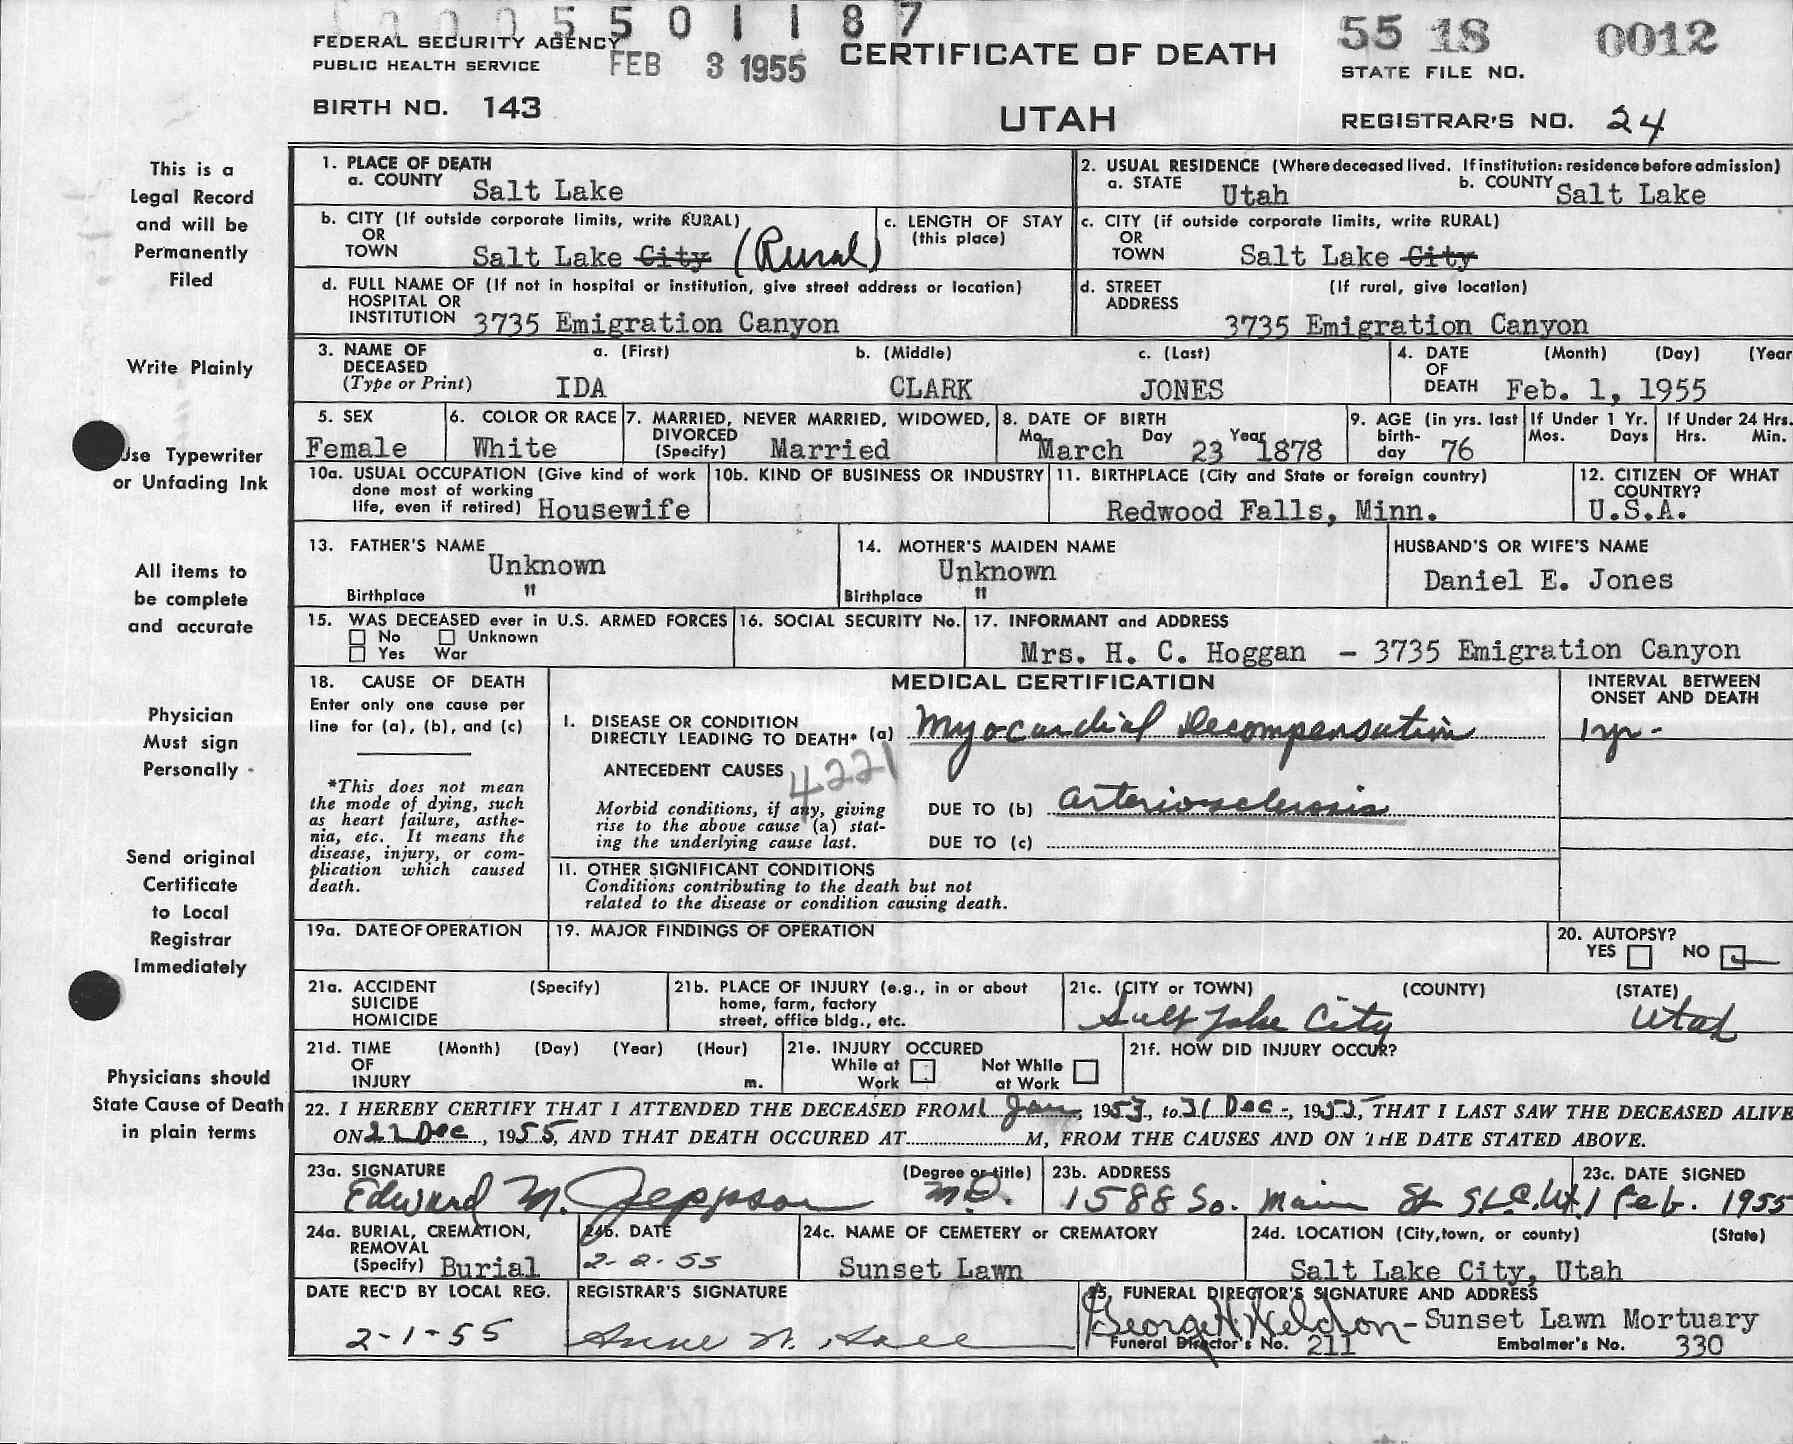 0005501187
55 18 0012
FEDERAL SECURITY AGENCY
PUBLIC HEALTH SERVICE
FEB 3 1955
CERTIFICATE OF DEATH
STATE FILE NO.
BIRTH NO. 143
UTAH
REGISTRAR'S NO. 24
This is a
Legal Record
and will be
Permanently
Filed
Write Plainly
Use Typewriter
or Unfading Ink
All items to
be complete
and accurate
Physician
Must sign
Personally -
Send original
Certificate
to Local
Registrar
Immediately
Physicians should
State Cause of Death
in plain terms
1. PLACE OF DEATH
a. COUNTY Salt Lake
2. USUAL RESIDENCE (Where deceased lived. If institution: residence before admission)
a. STATE Utah b. COUNTY Salt Lake
b. CITY (If outside corporate limits, write RURAL)
OR
TOWN Salt Lake City (Rural)
c. LENGTH OF STAY
(this place)
c. CITY (if outside corporate limits, write RURAL)
OR
TOWN Salt Lake City
d. FULL NAME OF (If not in hospital or institution, give street address or location)
HOSPITAL OR
INSTITUTION 3735 Emigration Canyon
d. STREET (If rural, give location)
ADDRESS
3735 Emigration Canyon
3. NAME OF a. (First) b. (Middle) c. (Last)
DECEASED
(Type or Print) IDA CLARK JONES
4. DATE (Month) (Day) (Year
OF
DEATH Feb. 1, 1955
5. SEX
Female
6. COLOR OR RACE
White
7. MARRIED, NEVER MARRIED, WIDOWED,
DIVORCED
(Specify) Married
8. DATE OF BIRTH
Mo. Day Year
March 23 1878
9. AGE (in yrs. last
birth-
day 76
If Under 1 Yr.
Mos. Days
If Under 24 Hrs.
Hrs. Min.
10a. USUAL OCCUPATION (Give kind of work
done most of working
life, even if retired) Housewife
10b. KIND OF BUSINESS OR INDUSTRY
11. BIRTHPLACE (City and State or foreign country)
Redwood Falls, Minn.
12. CITIZEN OF WHAT
COUNTRY?
U.S.A.
13. FATHER'S NAME
Unknown
Birthplace "
14. MOTHER'S MAIDEN NAME
Unknown
Birthplace "
HUSBAND'S OR WIFE'S NAME
Daniel E. Jones
15. WAS DECEASED ever in U.S. ARMED FORCES
No Unknown
Yes War
16. SOCIAL SECURITY No.
17. INFORMANT and ADDRESS
Mrs. H. C. Hoggan - 3735 Emigration Canyon
18. CAUSE OF DEATH
Enter only one cause per
line for (a), (b), and (c)
*This does not mean
the mode of dying, such
as heart failure, asthe-
nia, etc. It means the
disease, injury, or com-
plication which caused
death.
MEDICAL CERTIFICATION
INTERVAL BETWEEN
ONSET AND DEATH
I. DISEASE OR CONDITION
DIRECTLY LEADING TO DEATH* (a) Myocardial Decompensation 1 yr-
ANTECEDENT CAUSES 4221
Morbid conditions, if any, giving
rise to the above cause (a) stat-
ing the underlying cause last.
DUE TO (b) arteriosclerosis
DUE TO (c)
II. OTHER SIGNIFICANT CONDITIONS
Conditions contributing to the death but not
related to the disease or condition causing death.
19a. DATE OF OPERATION
19. MAJOR FINDINGS OF OPERATION
20. AUTOPSY?
YES NO
21a. ACCIDENT (Specify)
SUICIDE
HOMICIDE
21b. PLACE OF INJURY (e.g., in or about
home, farm, factory
street, office bldg., etc.
21c. (CITY or TOWN) (COUNTY) (STATE)
Salt Lake City Utah
21d. TIME (Month) (Day) (Year) (Hour)
OF
INJURY m.
21e. INJURY OCCURED
While at Not While
Work at Work
21f. HOW DID INJURY OCCUR?
22. I HEREBY CERTIFY THAT I ATTENDED THE DECEASED FROM 1 Jan, 1953, to 31 Dec-, 1955, THAT I LAST SAW THE DECEASED ALIVE
ON Dec, 1955, AND THAT DEATH OCCURED AT M, FROM THE CAUSES AND ON THE DATE STATED ABOVE.
23a. SIGNATURE (Degree or title)
Edward M. Jeppson M.D.
23b. ADDRESS
1588 So. Main St S.L.C. Ut.
23c. DATE SIGNED
1 Feb. 1955
24a. BURIAL, CREMATION,
REMOVAL
(Specify) Burial
24b. DATE
2-2-55
24c. NAME OF CEMETERY OR CREMATORY
Sunset Lawn
24d. LOCATION (City, town, or county) (State)
Salt Lake City, Utah
DATE REC'D BY LOCAL REG.
2-1-55
REGISTRAR'S SIGNATURE
Anne
25. FUNERAL DIRECTOR'S SIGNATURE AND ADDRESS
George H Weldon - Sunset Lawn Mortuary
Funeral Director's No. 211 Embalmer's No. 330